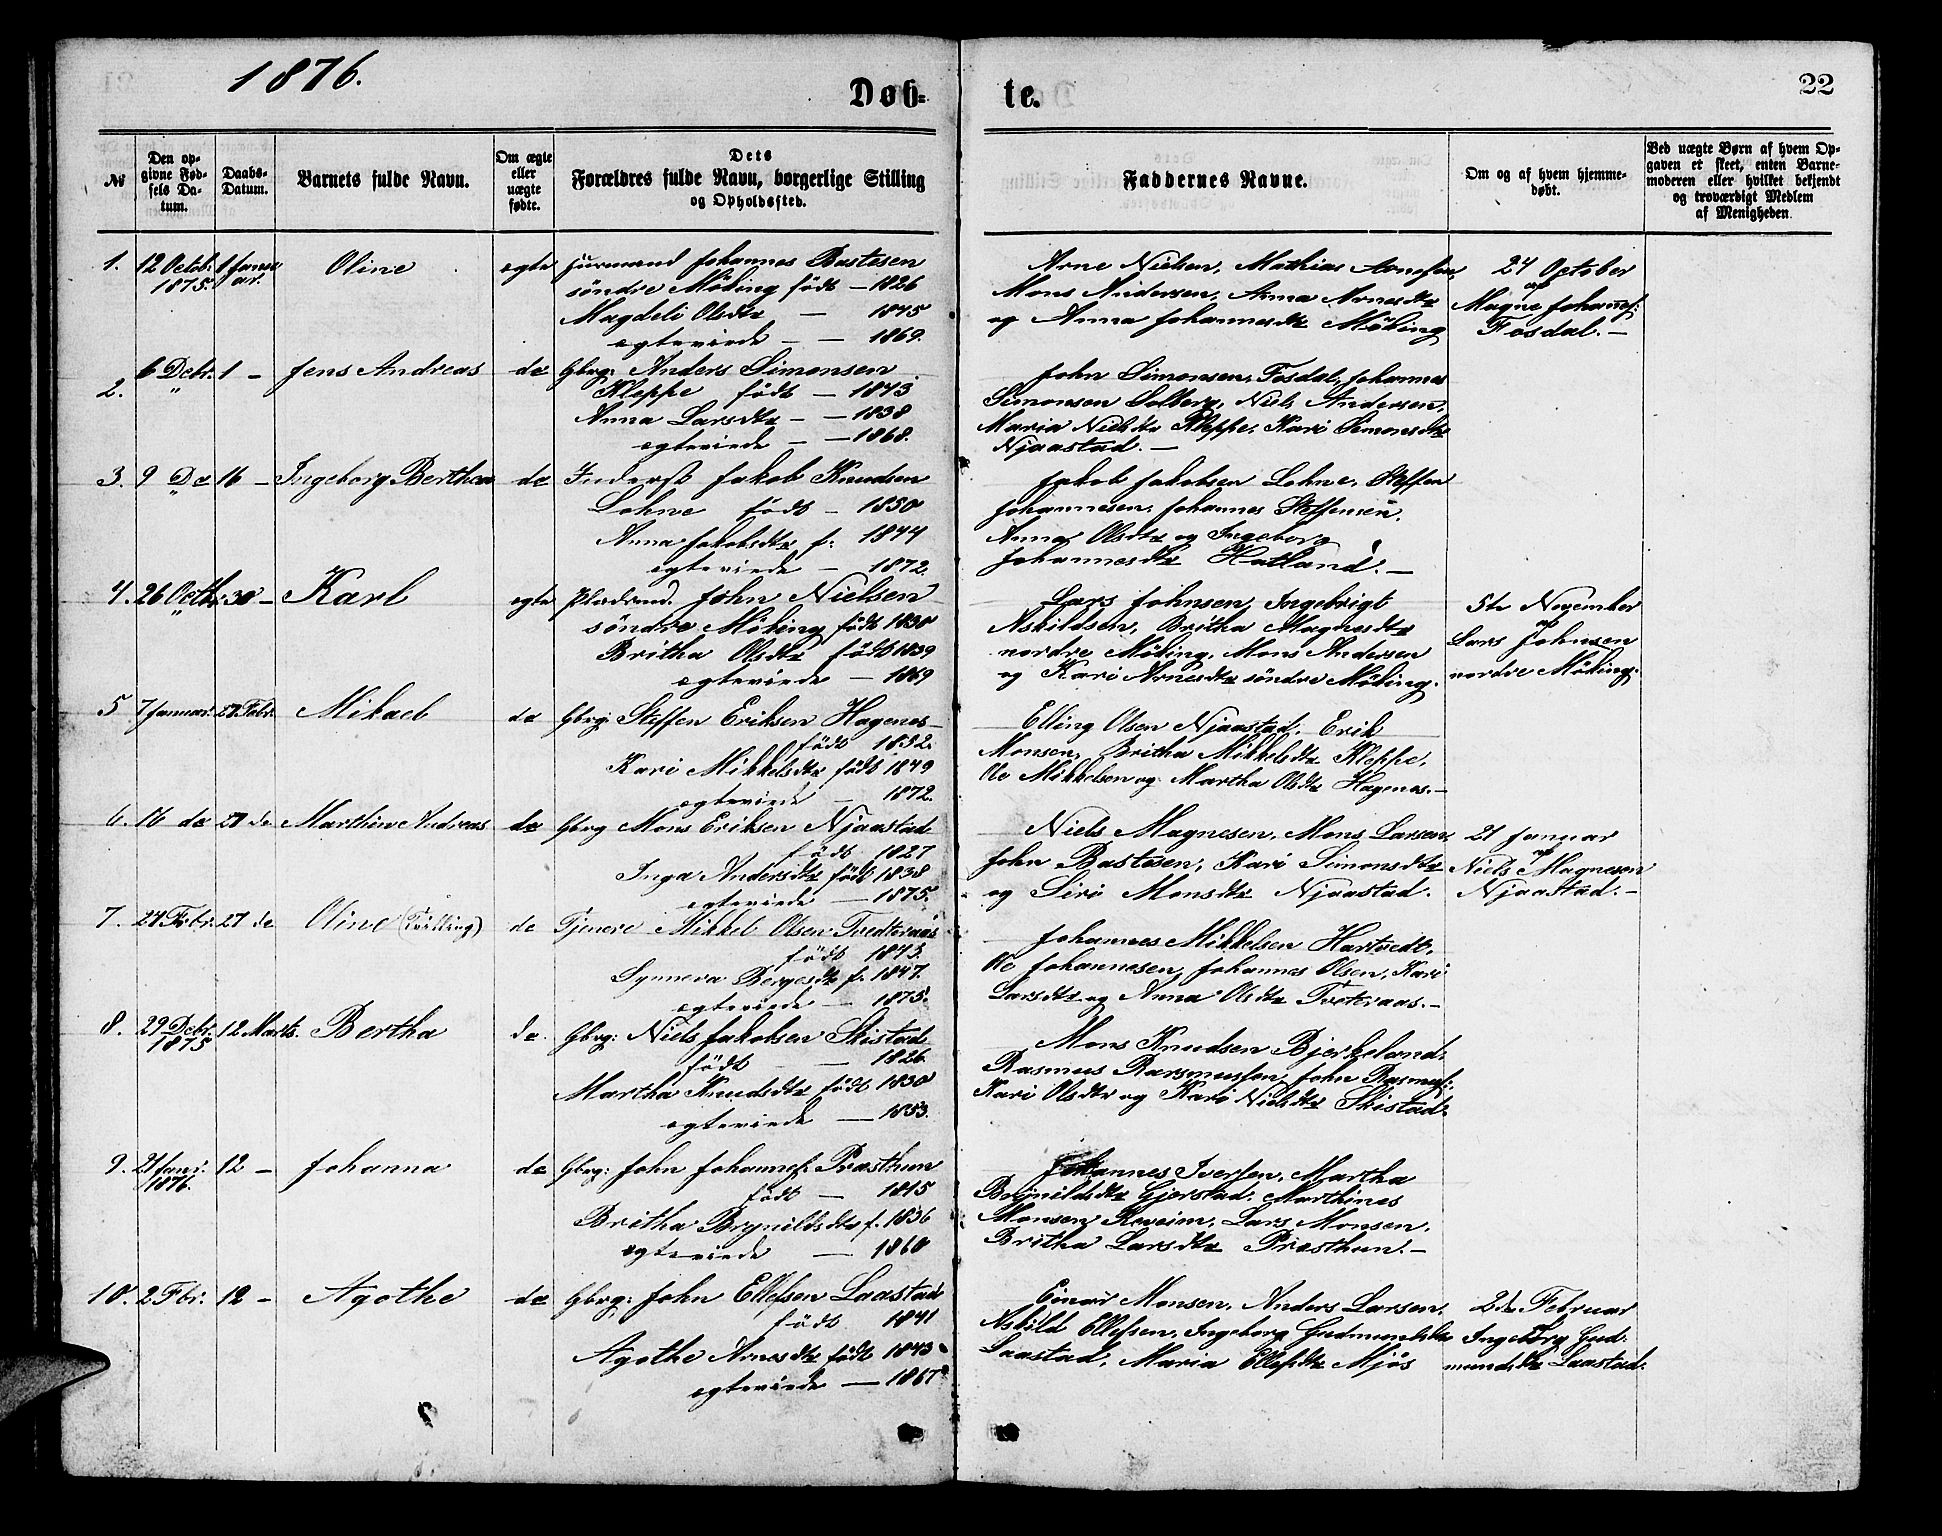 1876.
Døb=
te.
22
№
Den op-
givne Fød-
sels Da-
tum.
Daabs-
Datum.
Barnets fulde Navn.
Om ægte
eller
uægte
fødte.
Dets
Forældres fulde Navn, borgerlige Stilling
og Opholdssted.
Faddernes Navne.
Om og af hvem hjemme-
døbt.
Ved uægte Børn af hvem Op-
gaven et skeet, enten Barne-
moderen eller hvilket bekjendt
og troværdigt Medlem
af Menigheden.
1. 12 Octob: 1 Janu
1875. ar.
Oline
egte
Huusmand Johannes Bastesen
söndre Möking födt – 1826
Magdeli Olsdtr – 1845
egteviede – – 1869.
Arne Nielsen, Mathias Arnesen,
Mons Andersen, Anna Arnesdtr
og Anna Johannesdtr Möking
24 October
af
Magne Johanes:
Fosdal. –
2. 6 Decbr. 1 –
"
Jens Andreas
do
Gbrg: Anders Simonsen
Kleppe födt – 1843
Anna Larsdtr – – 1838
egteviede – – 1868.
John Simonsen, Fosdal, Johannes
Simonsen Solberg, Niels Andersen,
Maria Nielsdtr Kleppe, Kari Simonsdtr
Njaastad. –
3. 9 " Do 16 –
Ingeborg Berthea
do
Inderst Jakob Knudsen
Lohne födt – 1850
Anna Jakobsdtr f. 1844
egteviede – 1872.
Jakob Jakobsen Lohne, Steffen
Johannesen, Johannes Steffensen,
Anna Olsdtr og Ingeborg
Johannesdtr Hatland. –
4. 26 Octbr. 30 –
"
Karl
egte
Pladsmd. John Nielsen
söndre Möking födt 1830
Britha Olsdtr födt 1839
egteviede – 1869
Lars Johnsen, Ingebrigt
Askildsen, Britha Magnesdtr
nordre Möking, Mons Andersen
og Kari Arnesdtr söndre Möking.
5te November
af
Lars Johnsen
nordre Möking.
5 7 Januar. 27 Febr.
Mikael
do
Gbrg: Steffen Eriksen Hagenes
födt 1832.
Kari Mikkelsdtr födt 1849
egteviede – 1872.
Elling Olsen Njaastad, Erik
Monsen, Britha Mikkelsdtr Kleppe,
Ole Mikkelsen og Martha Olsdtr Hagenes. –
6. 16 do 27 do
Marthin Andreas
do
Gbrg Mons Eriksen Njaastad
födt 1827
Inga Andersdtr födt 1838
egteviede – 1875.
Niels Magnesen, Mons Larsen,
John Bastesen, Kari Simonsdtr
og Siri Monsdtr Njaastad.
21 Januar
af
Niels Magnesen
Njaastad. –
7. 24 Febr. 27 do
Oline (Tvilling)
do
Tjenere Mikkel Olsen Tvedteraas
födt 1843.
Synneva Bergesdtr f. 1847.
egteviede – 1875.
Johannes Mikkelsen Hartvedt,
Ole Johannesen, Johannes Olsen, Kari
Larsdtr og Anna Olsdtr Tveteraas. –
8. 29 Decbr. 12 Marts.
1875
Bertha
do
Gbrg: Niels Jakobsen Skistad
födt – 1826
Martha Knudsdtr födt 1830
egteviede – 1853.
Mons Knudsen Bjerkeland,
Rasmus Rasmussen, John Rasmus:
Kari Olsdtr og Kari Nielsdtr Skistad.
9. 21 Janr. 12 –
1876.
Johanna
do
Gbrg: John Johannes: Præsthun
födt – 1815
Britha Brynildsdtr f. 1836
egteviede – 1860
Johannes Iversen, Martha
Brynildsdtr Gjerstad, Marthines
Monsen Reveim, Lars Monsen,
Britha Larsdtr Præsthun. –
10. 2 Fbr. 12 –
Agothe
do
Gbrg: John Ellefsen Laastad
födt 1841
Agothe Arnesdtr födt 1843
egteviede – 1867
Einar Monsen, Anders Larsen,
Askild Ellefsen, Ingeborg Gudmundsdtr
Laastad, Maria Ellefsdtr Mjös
2de Februar
Ingeborg Gud:
mundsdtr Laastad.